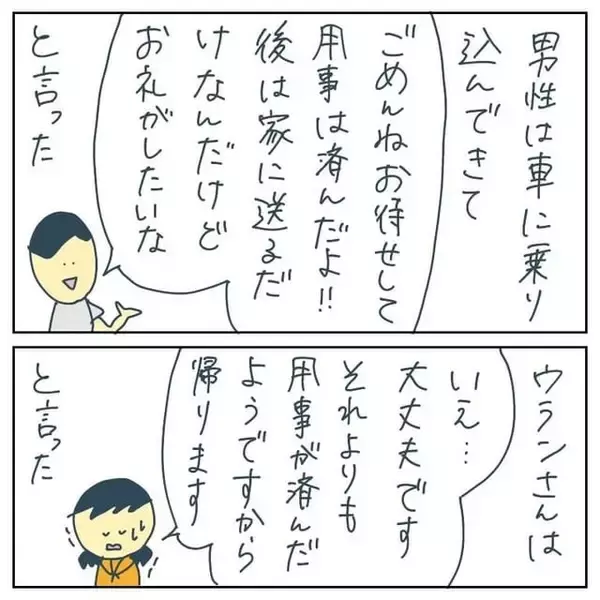 男性は車に乗り
込んできて
ごめんねお待せして
用事は済んだよ!!
後は家に送るだ
けなんだけど
お礼がしたいな
と言った
ウランさんは
いえ…
大丈夫です
それよりも
用事が済んだ
ようですから
帰ります
と言った